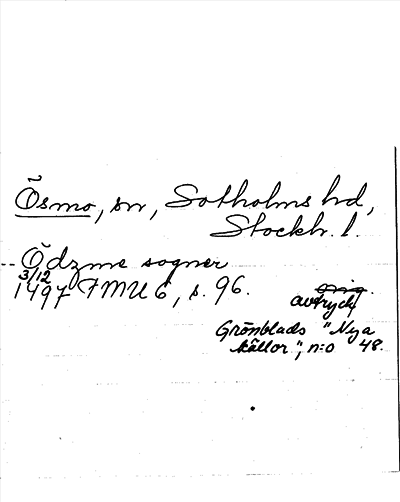 Ösmo, sn, Sotholms hd,
Stockh. l.
-- Ödzme sogner
3/12
1497 FMU 6, s. 96.
orig.
avtryck
Grönblads "Nya
källor", n:o 48.